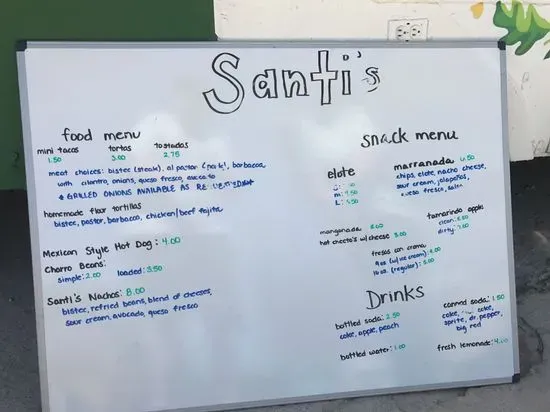 Santi's
food menu
mini tacos tortas tostadas
1.50 3.00 2.75
meat choices: bistec (steak), al pastor (pork), barbacoa
with cilantro, onions, queso fresco, avocado
* GRILLED ONIONS AVAILABLE AS
homemade flour tortillas
bistec, pastor, barbacoa, chicken/beef fajita
Mexican Style Hot Dog: 4.00
Charro Beans:
simple: 2.00 loaded: 3.50
Santi's Nachos: 8.00
bistec, refried beans, blend of cheeses,
sour cream, avocado, queso fresco
snack menu
elote
S:
M:
L:
marranada
chips, elote, nacho cheese,
sour cream, jalapeños,
queso fresco, salsa
manganada
hot cheeto's w/ cheese
tamarindo apple
clean:
dirty:
fresas con crema
(w/ice cream):
(regular):
Drinks
bottled soda: 2.50
coke, apple, peach
bottled water: 1.00
canned soda: 1.50
coke, coke,
sprite, dr. pepper,
big red
fresh lemonade: 4.00